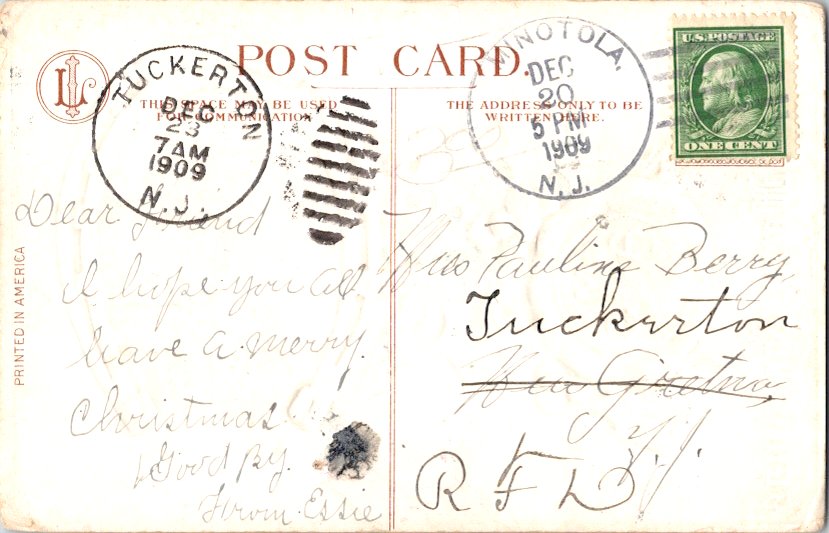 POST CARD.
THIS SPACE MAY BE USED
FOR COMMUNICATION
THE ADDRESS ONLY TO BE
WRITTEN HERE.
TUCKERTON
DEC
23
7 AM
1909
N.J.
MINOTOLA.
DEC
20
5 PM
1909
N.J.
U.S. POSTAGE
ONE CENT
PRINTED IN AMERICA
Dear Friend
I hope you all
have a merry
Christmas
Good By.
From Essie
Miss Pauline Berry
Tuckerton
New Gretna
N.J.
R F D